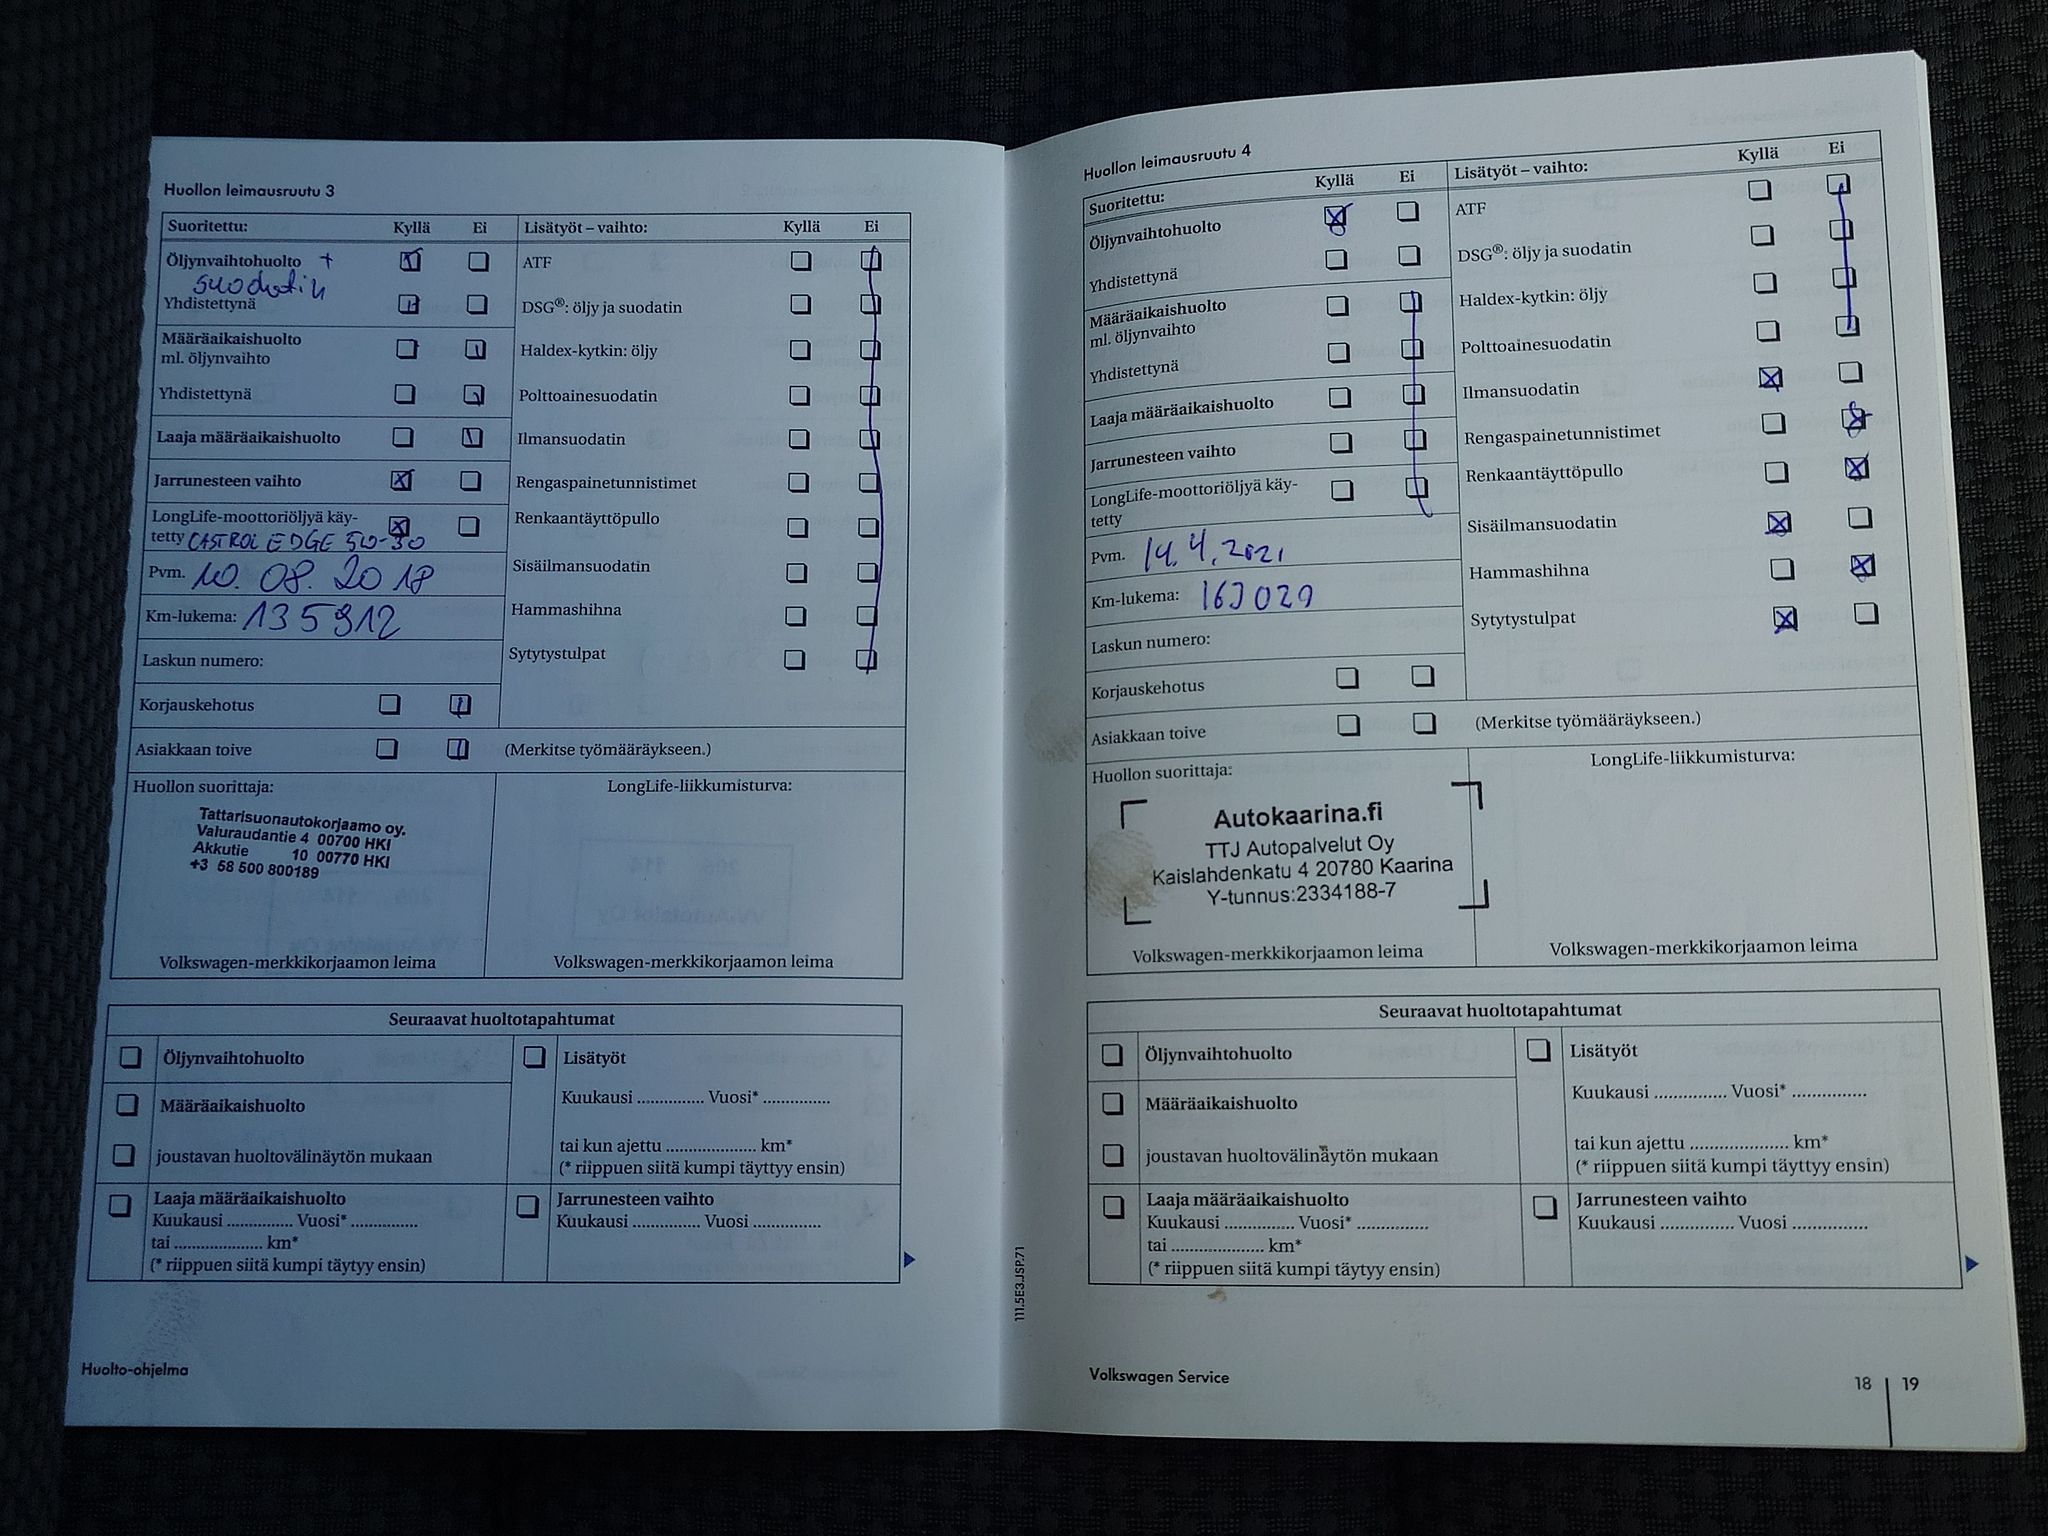 Huollon leimausruutu 3
Suoritettu: Kyllä Ei Lisätyöt – vaihto: Kyllä Ei
Öljynvaihtohuolto + ATF
suodatin
Yhdistettynä DSG®: öljy ja suodatin
Määräaikaishuolto Haldex-kytkin: öljy
ml. öljynvaihto
Yhdistettynä Polttoainesuodatin
Laaja määräaikaishuolto Ilmansuodatin
Jarrunesteen vaihto Rengaspainetunnistimet
LongLife-moottoriöljyä käy- Renkaantäyttöpullo
tetty CASTROL EDGE 5W-30
Pvm. 10. 08. 2018 Sisäilmansuodatin
Km-lukema: 135912 Hammashihna
Laskun numero: Sytytystulpat
Korjauskehotus
Asiakkaan toive (Merkitse työmääräykseen.)
Huollon suorittaja: LongLife-liikkumisturva:
Tattarisuonautokorjaamo oy.
Valuraudantie 4 00700 HKI
Akkutie 10 00770 HKI
+3 58 500 800189
Volkswagen-merkkikorjaamon leima Volkswagen-merkkikorjaamon leima
Seuraavat huoltotapahtumat
Öljynvaihtohuolto Lisätyöt
Määräaikaishuolto Kuukausi ............... Vuosi* ...............
joustavan huoltovälinäytön mukaan tai kun ajettu .................... km*
(* riippuen siitä kumpi täyttyy ensin)
Laaja määräaikaishuolto Jarrunesteen vaihto
Kuukausi ............... Vuosi* ............... Kuukausi ............... Vuosi ...............
tai .................... km*
(* riippuen siitä kumpi täytyy ensin)
Huolto-ohjelma
111.5E3.JSP.71
Huollon leimausruutu 4
Suoritettu: Kyllä Ei Lisätyöt – vaihto: Kyllä Ei
Öljynvaihtohuolto ATF
Yhdistettynä DSG®: öljy ja suodatin
Määräaikaishuolto Haldex-kytkin: öljy
ml. öljynvaihto
Yhdistettynä Polttoainesuodatin
Laaja määräaikaishuolto Ilmansuodatin
Jarrunesteen vaihto Rengaspainetunnistimet
LongLife-moottoriöljyä käy- Renkaantäyttöpullo
tetty
Pvm. 14.4.2021 Sisäilmansuodatin
Km-lukema: Hammashihna
Laskun numero: Sytytystulpat
Korjauskehotus
Asiakkaan toive (Merkitse työmääräykseen.)
Huollon suorittaja: LongLife-liikkumisturva:
Autokaarina.fi
TTJ Autopalvelut Oy
Kaislahdenkatu 4 20780 Kaarina
Y-tunnus:2334188-7
Volkswagen-merkkikorjaamon leima Volkswagen-merkkikorjaamon leima
Seuraavat huoltotapahtumat
Öljynvaihtohuolto Lisätyöt
Määräaikaishuolto Kuukausi ............... Vuosi* ...............
joustavan huoltovälinäytön mukaan tai kun ajettu .................... km*
(* riippuen siitä kumpi täyttyy ensin)
Laaja määräaikaishuolto Jarrunesteen vaihto
Kuukausi ............... Vuosi* ............... Kuukausi ............... Vuosi ...............
tai .................... km*
(* riippuen siitä kumpi täytyy ensin)
Volkswagen Service
18 19